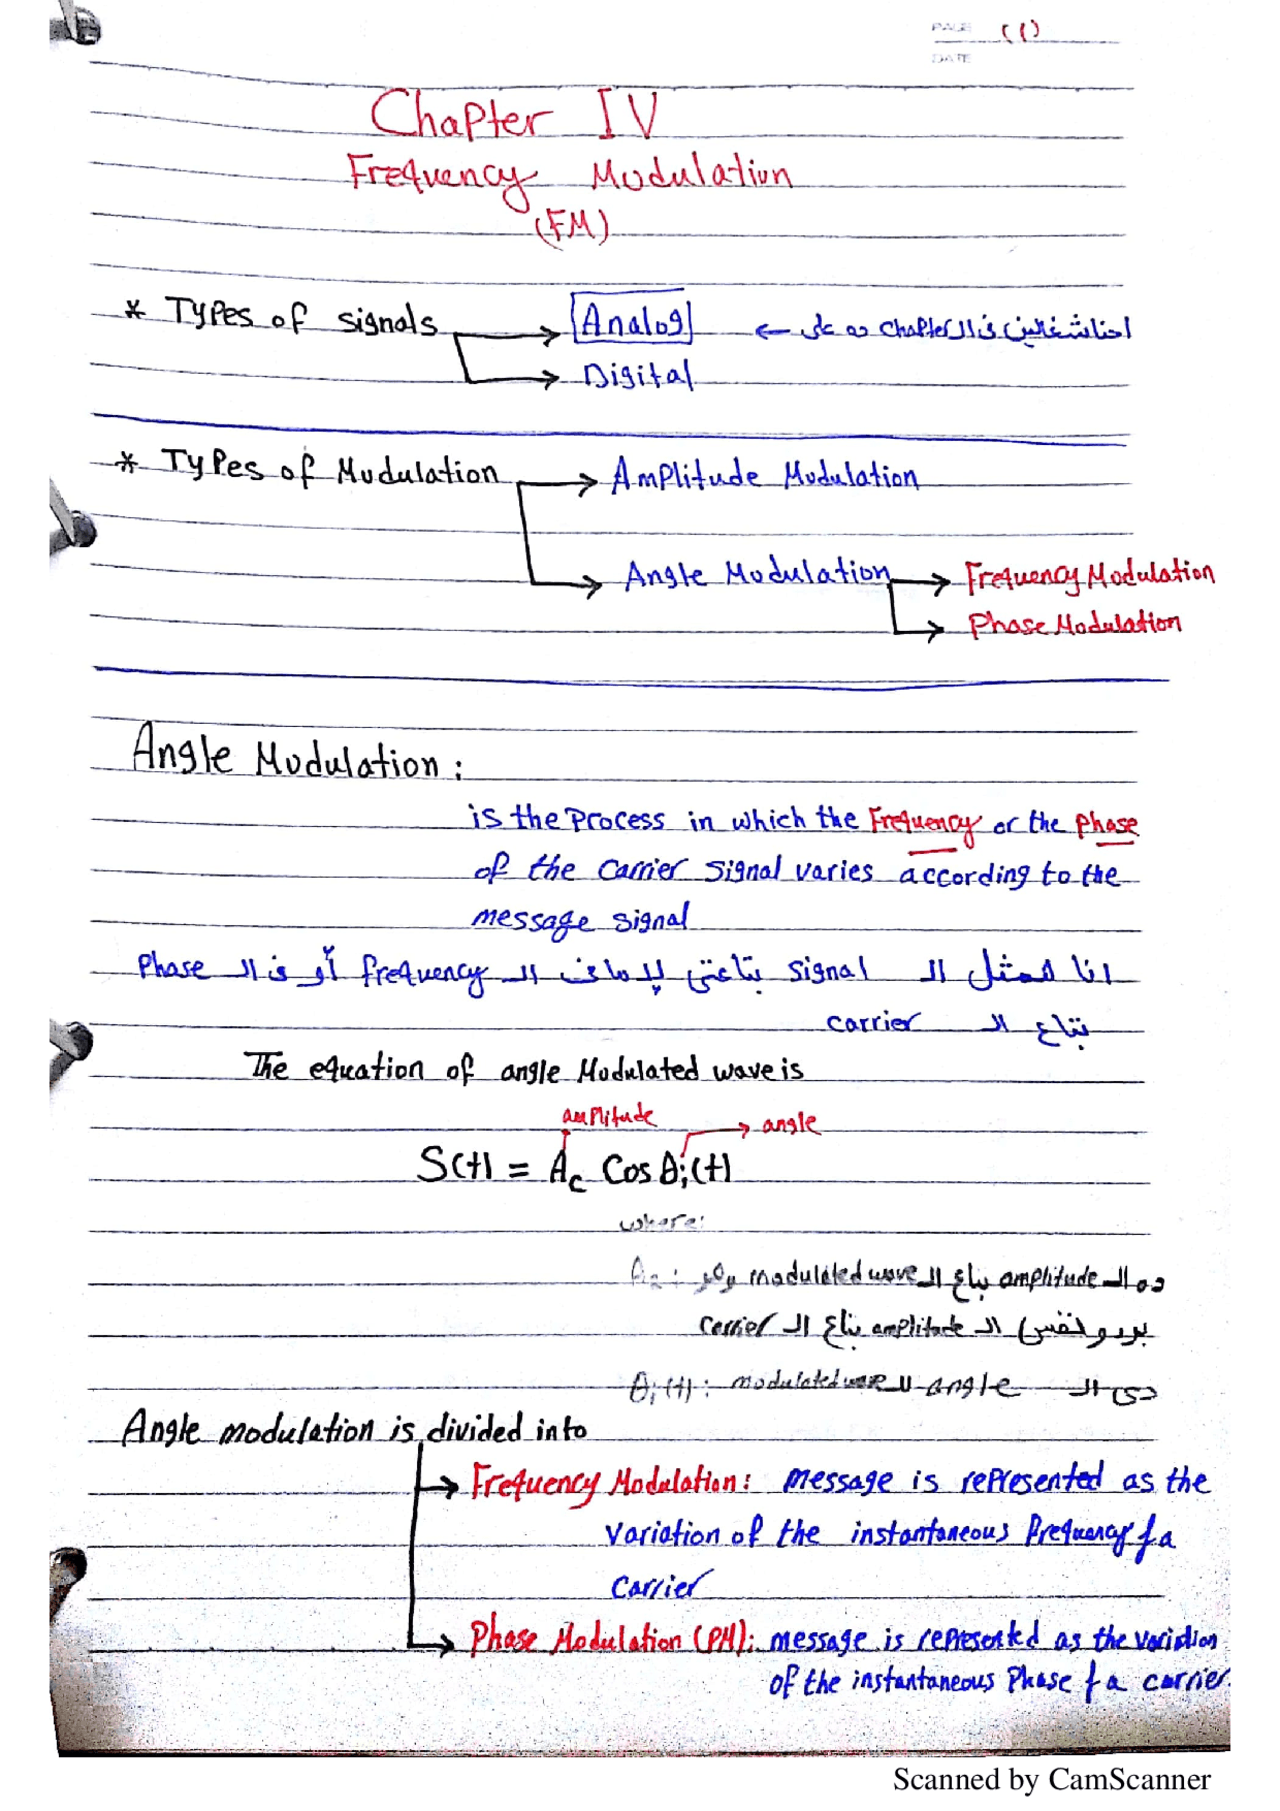 PAGE (1)
DATE
Chapter IV
Frequency Modulation
(FM)
* Types of signals → Analog ← احنا شغالين فى الـ chapter ده على
→ Digital
* Types of Modulation → Amplitude Modulation
→ Angle Modulation → Frequency Modulation
→ Phase Modulation
Angle Modulation :
is the process in which the Frequency or the phase
of the carrier signal varies according to the
message signal
انا همثل الـ signal بتاعتى يإما فى الـ frequency أو فى الـ Phase
بتاع الـ carrier
The equation of angle Modulated wave is
amplitude → angle
S(t) = Ac Cos θi(t)
where:
Ac : ده الـ amplitude بتاع الـ modulated wave وهو
بردو نفس الـ amplitude بتاع الـ carrier
θi(t) : دى الـ angle لـ modulated wave
Angle modulation is divided into
→ Frequency Modulation : message is represented as the
variation of the instantaneous frequency of a
carrier
→ Phase Modulation (PM): message is represented as the variation
of the instantaneous Phase of a carrier
Scanned by CamScanner